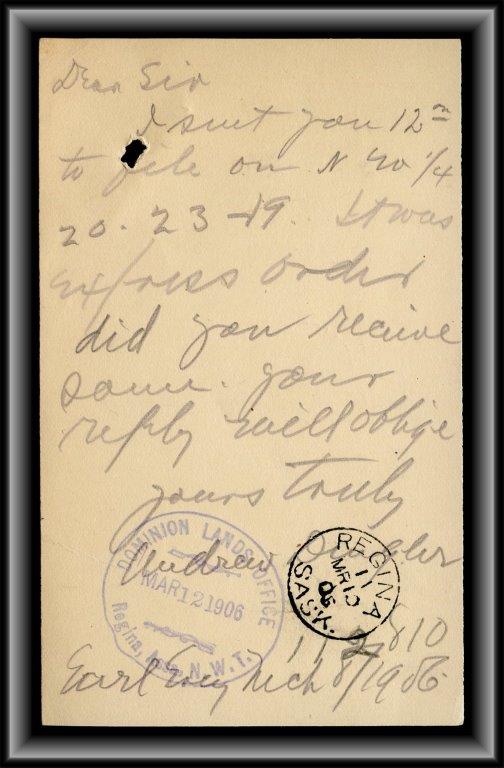 Dear Sir
I sent you 12 00
to file on N W 1/4
20. 23 - 19. It was
express order
did you receive
same. your
reply will oblige
yours truly
Andrew
DOMINION LANDS OFFICE
MAR 12 1906
Regina, N.W.T.
REGINA
11
MR 10
06
SASK.
810
Earl Grey Mch 8/1906